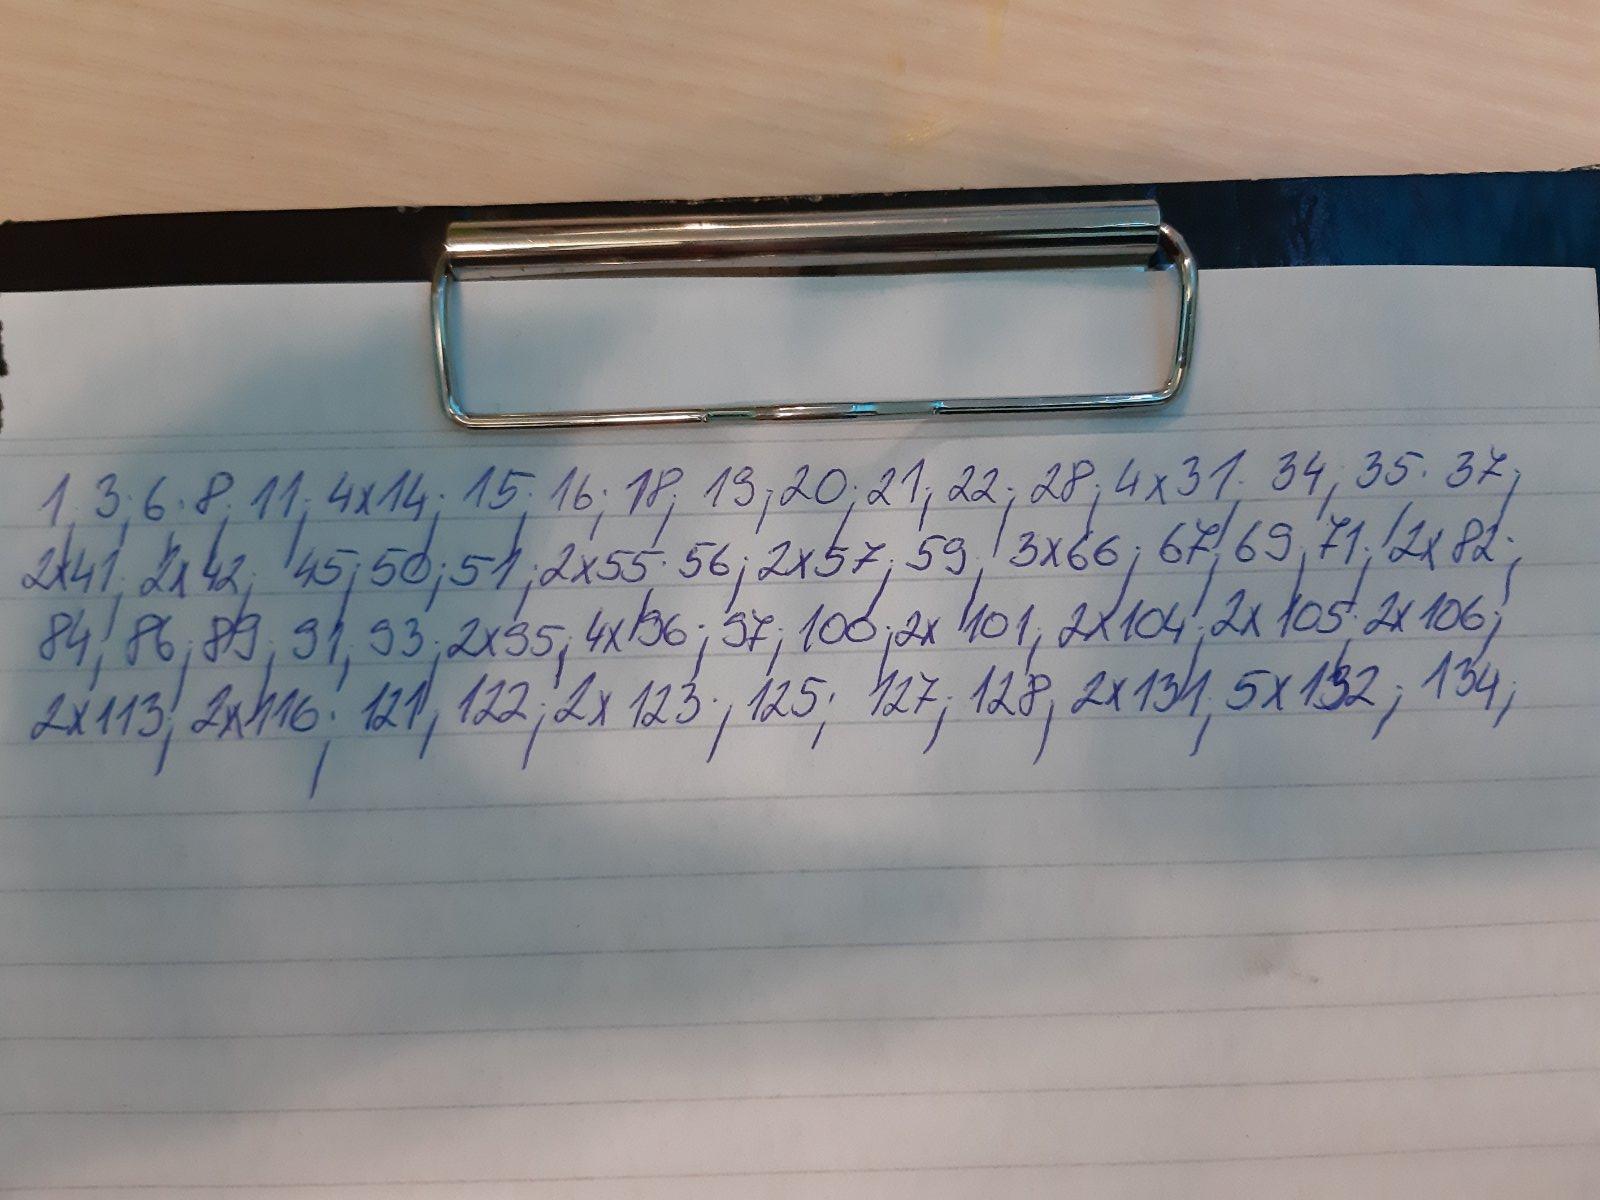 1; 3; 6; 8; 11; 4x14; 15; 16; 18; 19; 20; 21; 22; 28; 4x31; 34; 35; 37;
2x41; 2x42; 45; 50; 51; 2x55; 56; 2x57; 59; 3x66; 67; 69; 71; 2x82;
84; 86; 89; 91; 93; 2x95; 4x96; 97; 100; 2x101; 2x104; 2x105; 2x106;
2x113; 2x116; 121; 122; 2x123; 125; 127; 128; 2x131; 5x132; 134;